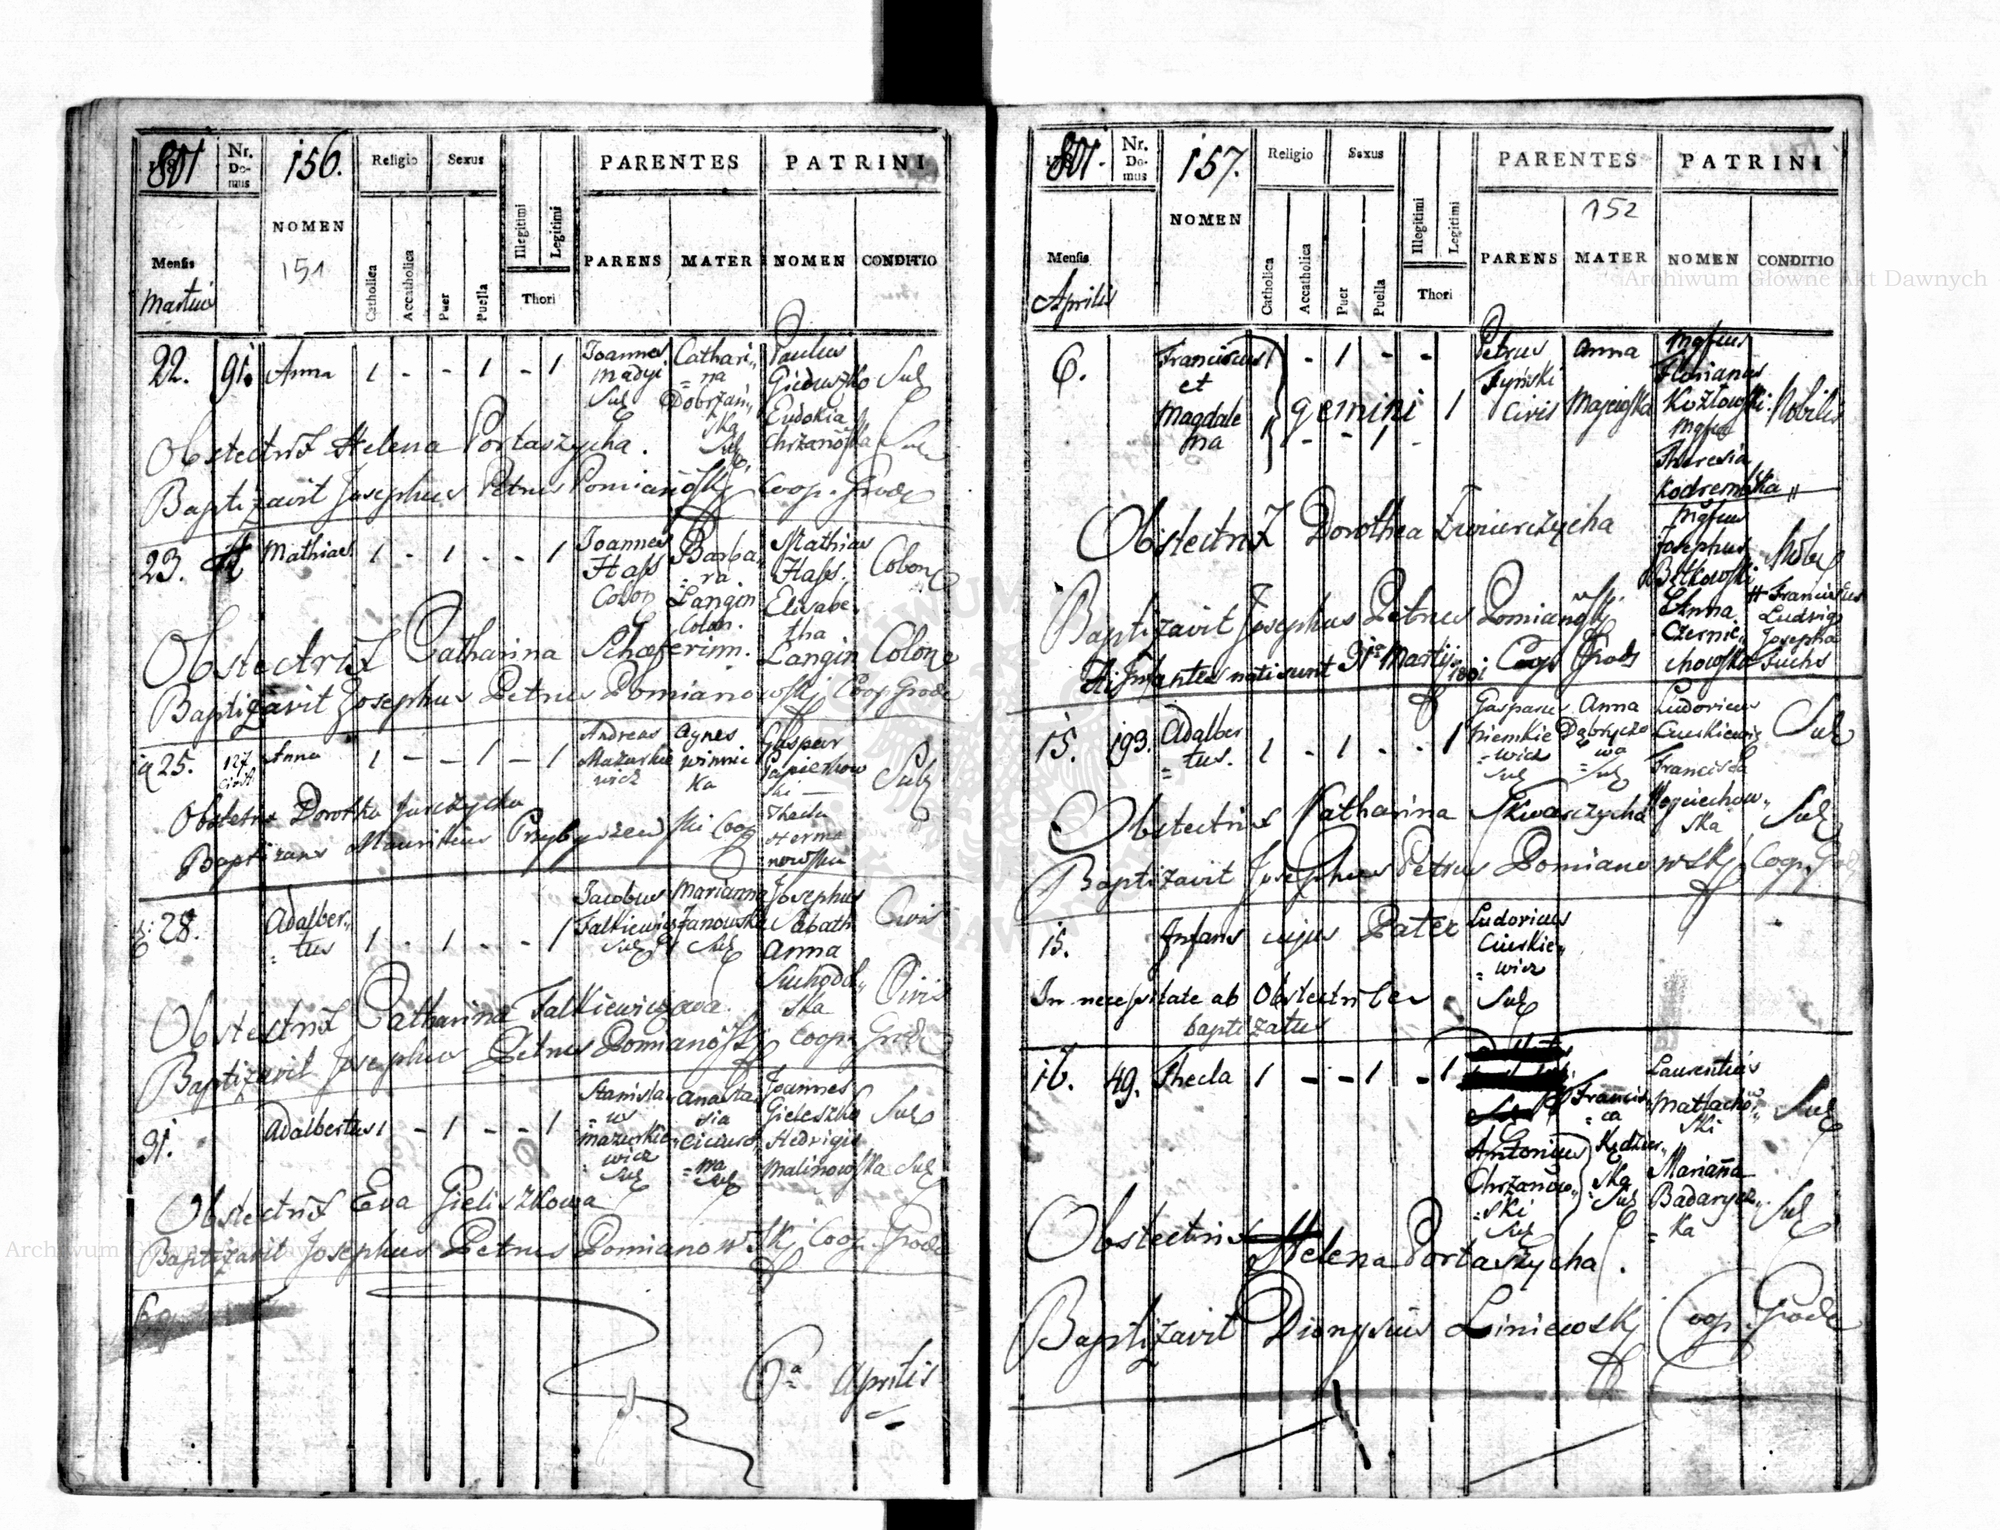 801
Nr. Domus
156.
Religio
Sexus
PARENTES
PATRINI
Mensis
Martius
NOMEN
151
Catholica
Accatholica
Puer
Puella
Illegitimi
Legitimi
Thori
PARENS
MATER
NOMEN
CONDITIO
22. 91. Anna 1 - - 1 - 1
Joannes
Madyi
Sub
Cathari-
na
Dobrzań-
ska
Sub
Paulus
Gieduszko Sub
Eudokia
Chrżanowska Sub
Obstectrix Helena Portaszycha.
Baptizavit Josephus Petrus Pomianowskj Coop. Grode
23. Mathias 1 - 1 - - 1
Joannes
Hass
Colon
Barba-
ra
Langin
Colon.
Mathias
Hass. Colon
Elisabe-
tha
Langin Colon
Obstectrix Catharina Schæferinn.
Baptizavit Josephus Petrus Pomianowskj Coop Grode
25. 127 Anna 1 - - 1 - 1
Andreas
Mazurkie
wicz
Agnes
winnic
ka
Gaspar
Papierkow
ski Sub
Thecla
Herma
nowska
Obstetrix Dorothea
Baptizans Mauritius Przybyszewski Coop
28. Adalber-
tus 1 - 1 - - 1
Jacobus
Falkiewicz
Sub
Marianna
Janowska
Sub
Josephus
Sabath Civis
Anna
Suchodol-
ska Civis
Obstectrix Catharina Falkiewiczowa
Baptizavit Josephus Petrus Pomianowskj Coop. Grode
31. Adalbertus 1 - 1 - - 1
Stanisla-
us
Mazurkie-
wicz
Sub
Anasta
sia
Sub
Joannes
Gieleszko Sub
Hedrigis
Malinowska Sub
Obstectrix Eva Gieliszkowa
Baptizavit Josephus Petrus Pomianowskj Coop. Grode
6a Aprilis
801.
Nr. Domus
157.
Religio
Sexus
PARENTES
PATRINI
Mensis
Aprilis
NOMEN
152
Catholica
Accatholica
Puer
Puella
Illegitimi
Legitimi
Thori
PARENS
MATER
NOMEN
CONDITIO
6. Franciscus
et
Magdale
na
1 - 1 - -
gemini 1
1 - - 1 -
Petrus
Żyński
Civis
Anna
Majewska
Mgfcus
Florianus
Kozłowski Nobilis
Mgfca
Theresia
Kodremska
Obstectrix Dorothea Zwierżycha
Mgfcus
Josephus
Bełkowski Nobi
Anna
Czernie-
chowska
# Franciscus
Ludrig
Josepha
Fuchs
Baptizavit Josephus Petrus Pomianowskj
Coop Grode
Hi Infantes nati sunt 31a Martij 1801
15. 193. Adalber
tus. 1 - 1 - - 1
Gasparus
Niemkie
wicz
Sub
Anna
Sub
Ludovicus
Ciurkiewicz Sub
Francisca
Wojciechow-
ska Sub
Obstectrix Katharina Skwarczycha
Baptizavit Josephus Petrus Pomianowskj Coop. Grod
15. Infans cujus Pater Ludovicus
Ciurkie-
wicz
Sub
In necessitate ab Obstectrice
baptizatus
16. 49. Thecla 1 - - 1 - 1
Antonius
Chrżanow-
ski
Sub
Francis-
ca
Kędzier-
ska
Sub
Laurentius
Matlachow-
ski Sub
Marianna
Badarycz-
ka Sub
Obstectrix
Helena Portaszycha.
Baptizavit Dionysius Liniewskj Coop. Grode
Archiwum Główne Akt Dawnych